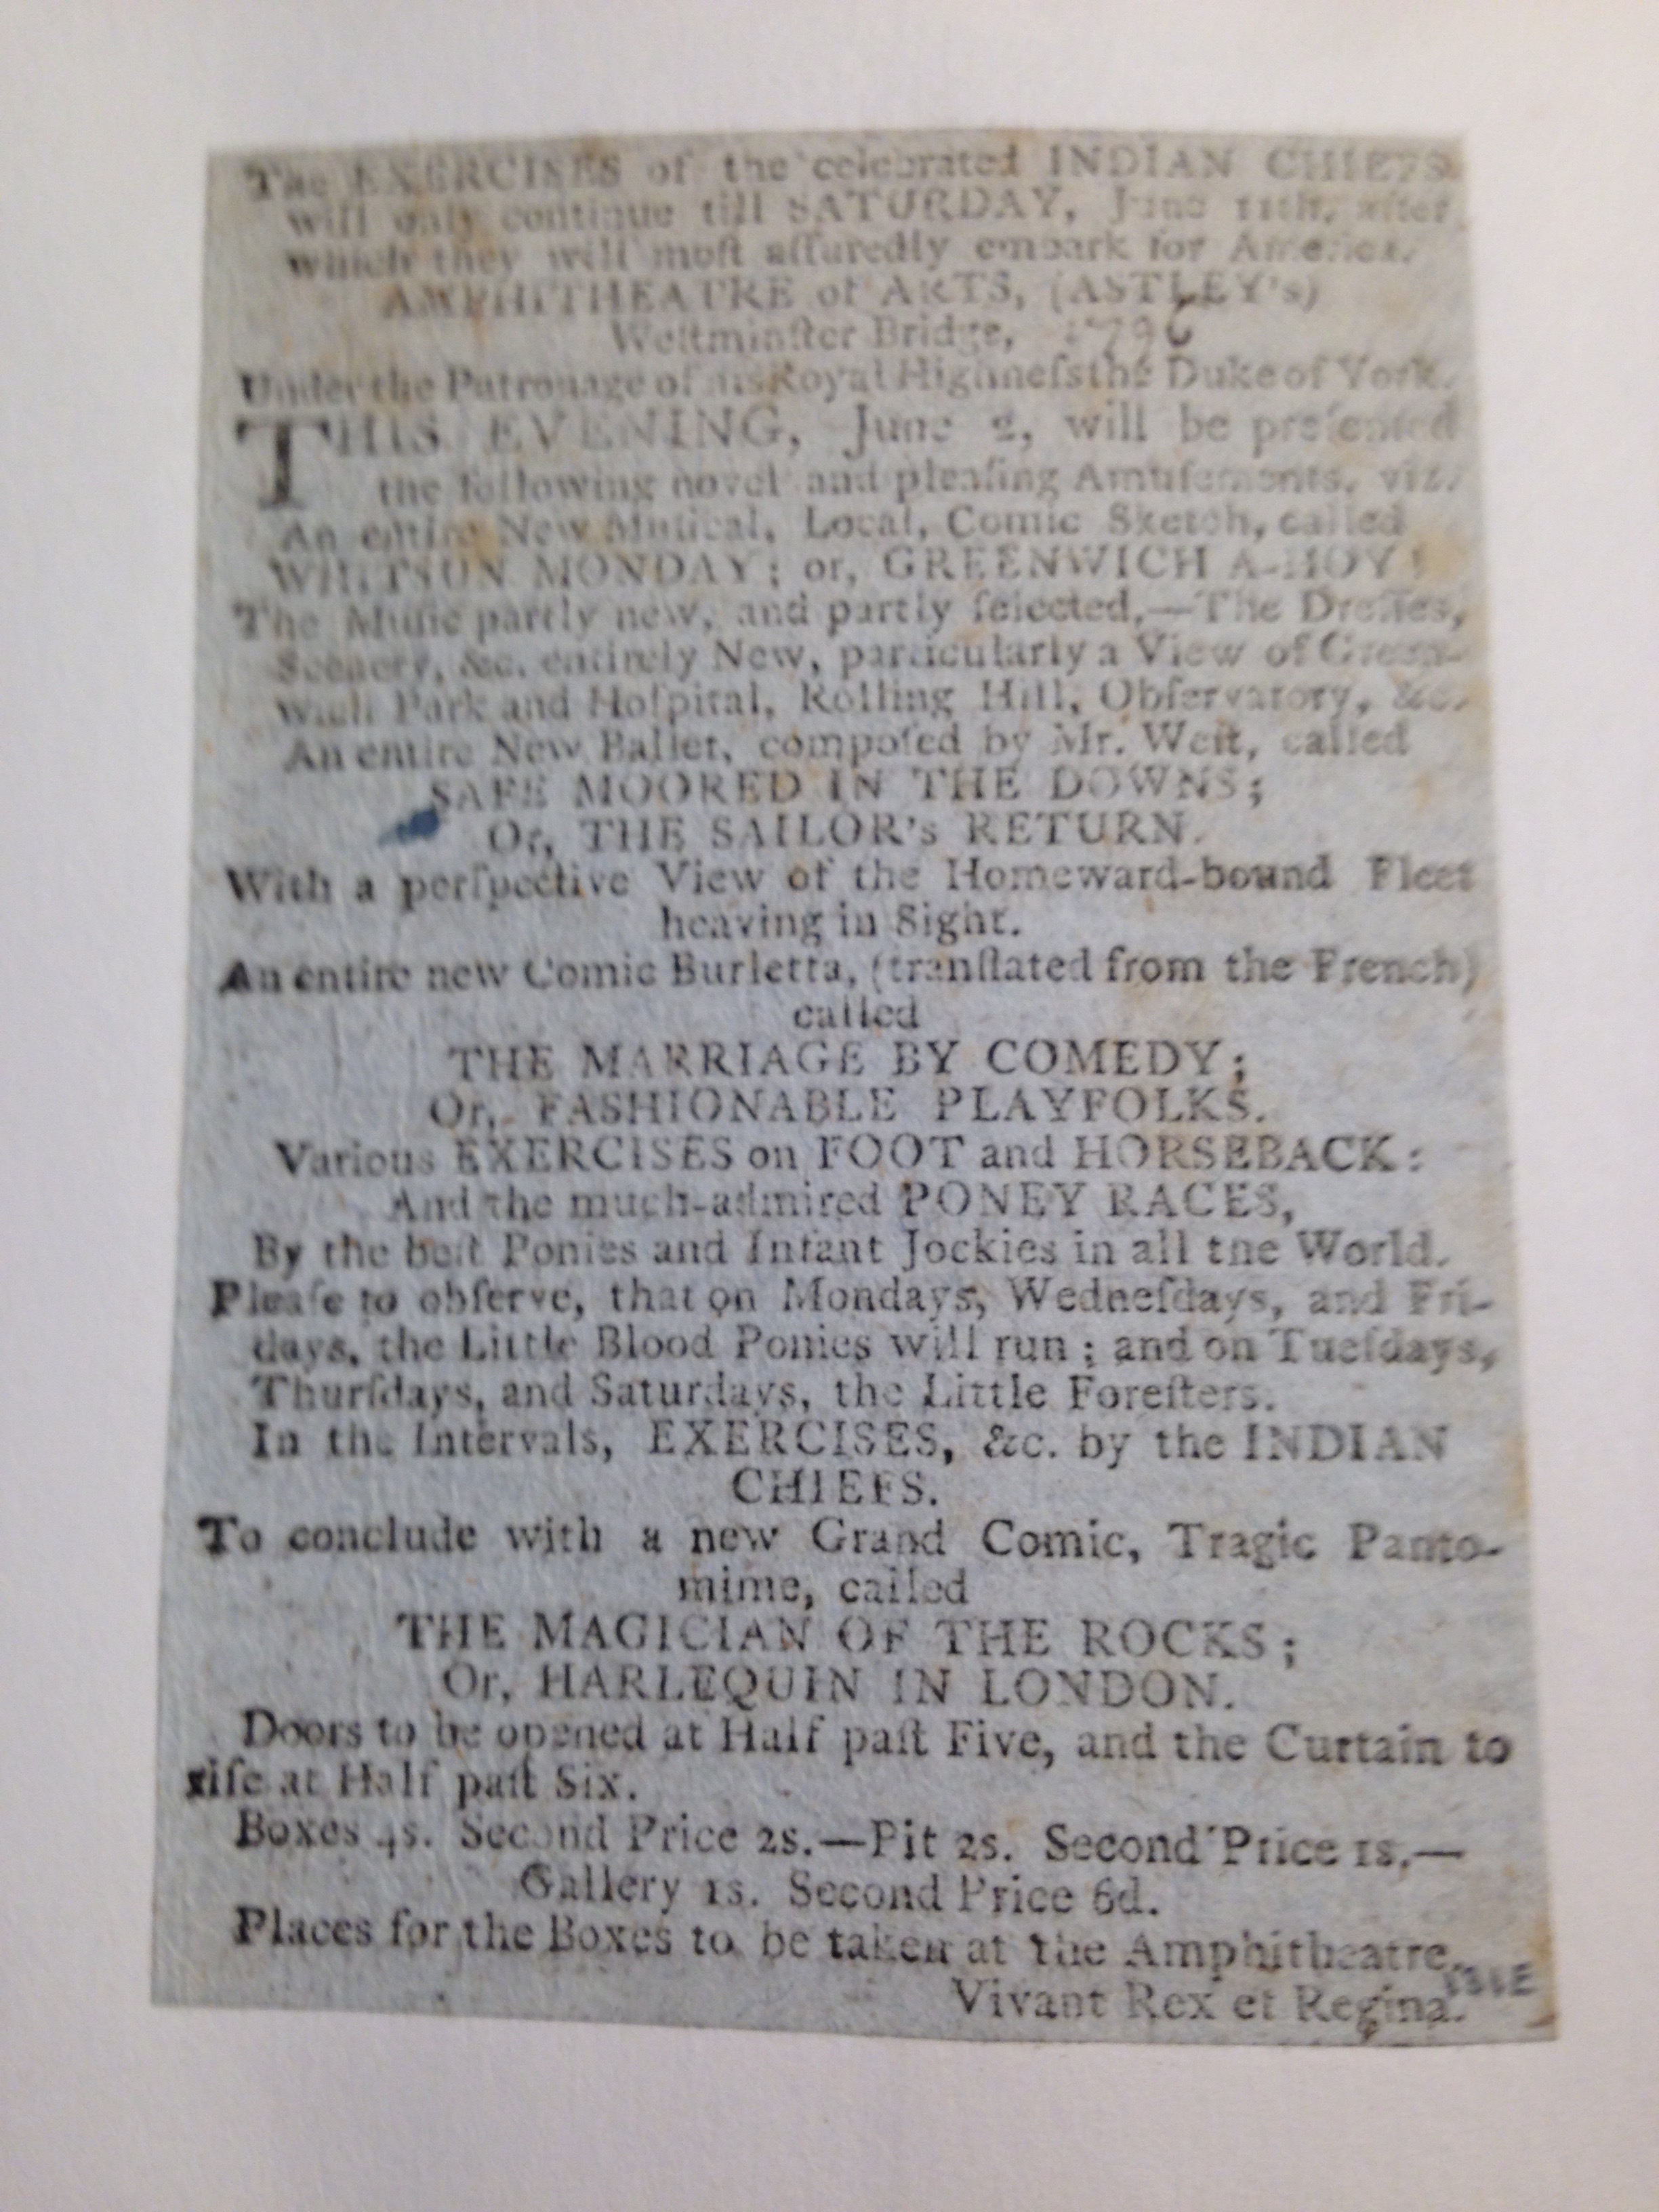 The EXERCISES of the celebrated INDIAN CHIEFS
will only continue till SATURDAY, June 11th, after
which they will moſt aſſuredly embark for America.
AMPHITHEATRE of ARTS, (ASTLEY's)
Weſtminſter Bridge, 1796
Under the Patronage of his Royal Highneſs the Duke of York.
THIS EVENING, June 2, will be preſented
the following novel and pleaſing Amuſements, viz.
An entire New Muſical, Local, Comic Sketch, called
WHITSUN MONDAY; or, GREENWICH A-HOY!
The Muſic partly new, and partly ſelected,—The Dreſſes,
Scenery, &c. entirely New, particularly a View of Green-
wich Park and Hoſpital, Rolling Hill, Obſervatory, &c.
An entire New Ballet, compoſed by Mr. Weſt, called
SAFE MOORED IN THE DOWNS;
Or, THE SAILOR's RETURN.
With a perſpective View of the Homeward-bound Fleet
heaving in Sight.
An entire new Comic Burletta, (tranſlated from the French)
called
THE MARRIAGE BY COMEDY;
Or, FASHIONABLE PLAYFOLKS.
Various EXERCISES on FOOT and HORSEBACK:
And the much-admired PONEY RACES,
By the beſt Ponies and Infant Jockies in all the World.
Pleaſe to obſerve, that on Mondays, Wedneſdays, and Fri-
days, the Little Blood Ponies will run; and on Tueſdays,
Thurſdays, and Saturdays, the Little Foreſters.
In the Intervals, EXERCISES, &c. by the INDIAN
CHIEFS.
To conclude with a new Grand Comic, Tragic Panto-
mime, called
THE MAGICIAN OF THE ROCKS;
Or, HARLEQUIN IN LONDON.
Doors to be opened at Half paſt Five, and the Curtain to
riſe at Half paſt Six.
Boxes 4s. Second Price 2s.—Pit 2s. Second Price 1s.—
Gallery 1s. Second Price 6d.
Places for the Boxes to be taken at the Amphitheatre.
Vivant Rex et Regina.